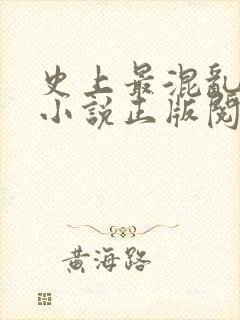 史上最混亂
小說正版閱
黃海路